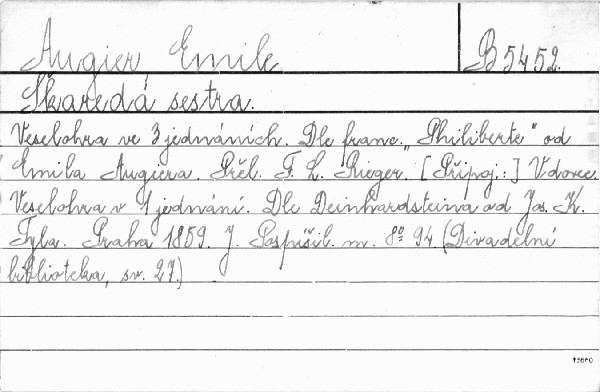 Augier Emile
B 5452.
Škaredá sestra.
Veselohra ve 3 jednáních. Dle franc. „Philiberte" od
Emila Augiera. Přel. F. L. Rieger. [Připoj.:] Vdovec.
Veselohra v 1 jednání. Dle Deinhardsteina od Jos. K.
Tyla. Praha 1859. J. Pospíšil. m. 8º 94 (Divadelní
bibliotéka, sv. 27.)